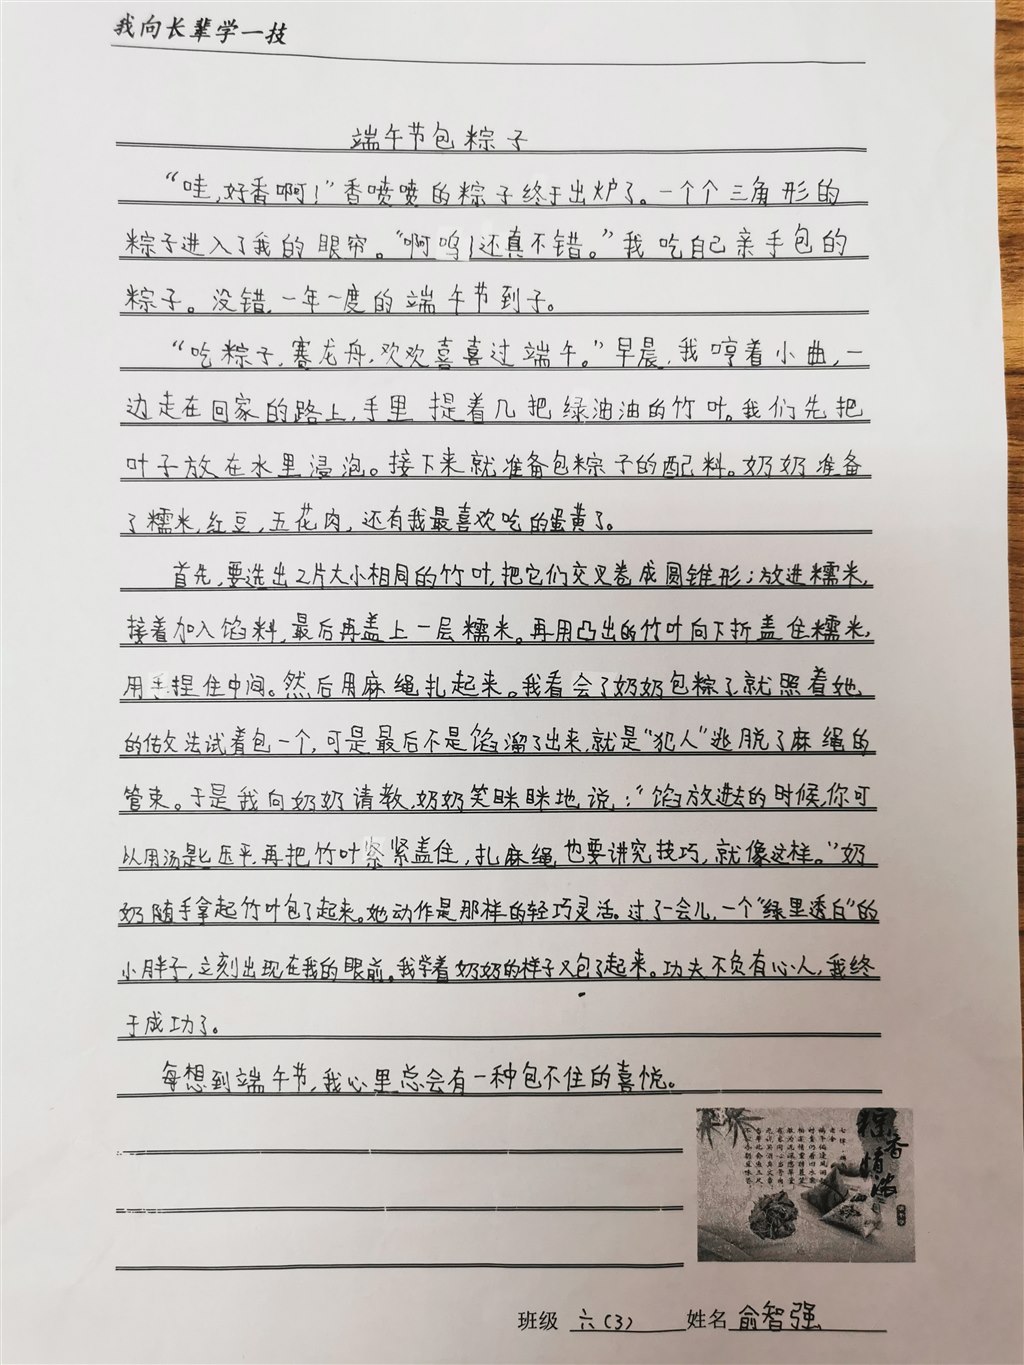 我向长辈学一技
端午节包粽子
“哇,好香啊!”香喷喷的粽子终于出炉了。一个个三角形的
粽子进入了我的眼帘。“啊呜!还真不错。”我吃自己亲手包的
粽子。没错,一年一度的端午节到了。
“吃粽子,赛龙舟,欢欢喜喜过端午。”早晨,我哼着小曲,一
边走在回家的路上,手里提着几把绿油油的竹叶。我们先把
叶子放在水里浸泡。接下来就准备包粽子的配料。奶奶准备
了糯米,红豆,五花肉,还有我最喜欢吃的蛋黄了。
首先,要选出2片大小相同的竹叶,把它们交叉卷成圆锥形;放进糯米,
接着加入馅料,最后再盖上一层糯米。再用凸出的竹叶向下折盖住糯米,
用手捏住中间。然后用麻绳扎起来。我看会了奶奶包粽了,就照着她
的做法试着包一个,可是最后不是馅溜了出来,就是“犯人”逃脱了麻绳的
管束。于是我向奶奶请教,奶奶笑眯眯地说,:“馅放进去的时候,你可
以用汤匙压平,再把竹叶紧紧盖住,扎麻绳也要讲究技巧,就像这样。”奶
奶随手拿起竹叶包了起来。她动作是那样的轻巧灵活。过了一会儿,一个“绿里透白”的
小胖子,立刻出现在我的眼前。我学着奶奶的样子又包了起来。功夫不负有心人,我终
于成功了。
每想到端午节,我心里总会有一种包不住的喜悦。
粽香情浓
班级 六(3) 姓名 俞智强